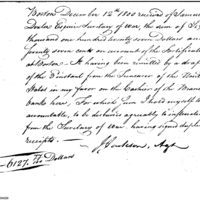 Boston December 12th 1800 received of Samuel
Dexter Esquire Secretary of war the sum of Six
thousand one hundred twenty seven Dollars and
seventy seven cents on account of the Fortifications
at Boston. It having been remitted by a draft
of the 8 instant from the Treasurer of the United
States in my favor on the Cashier of the Branch
bank here, For which Sum I hold myself to be
accountable, to be disbursed agreeably to instructions
from the Secretary of war, having signed duplicate
receipts.
J Jackson, Agt
6127. Dollars